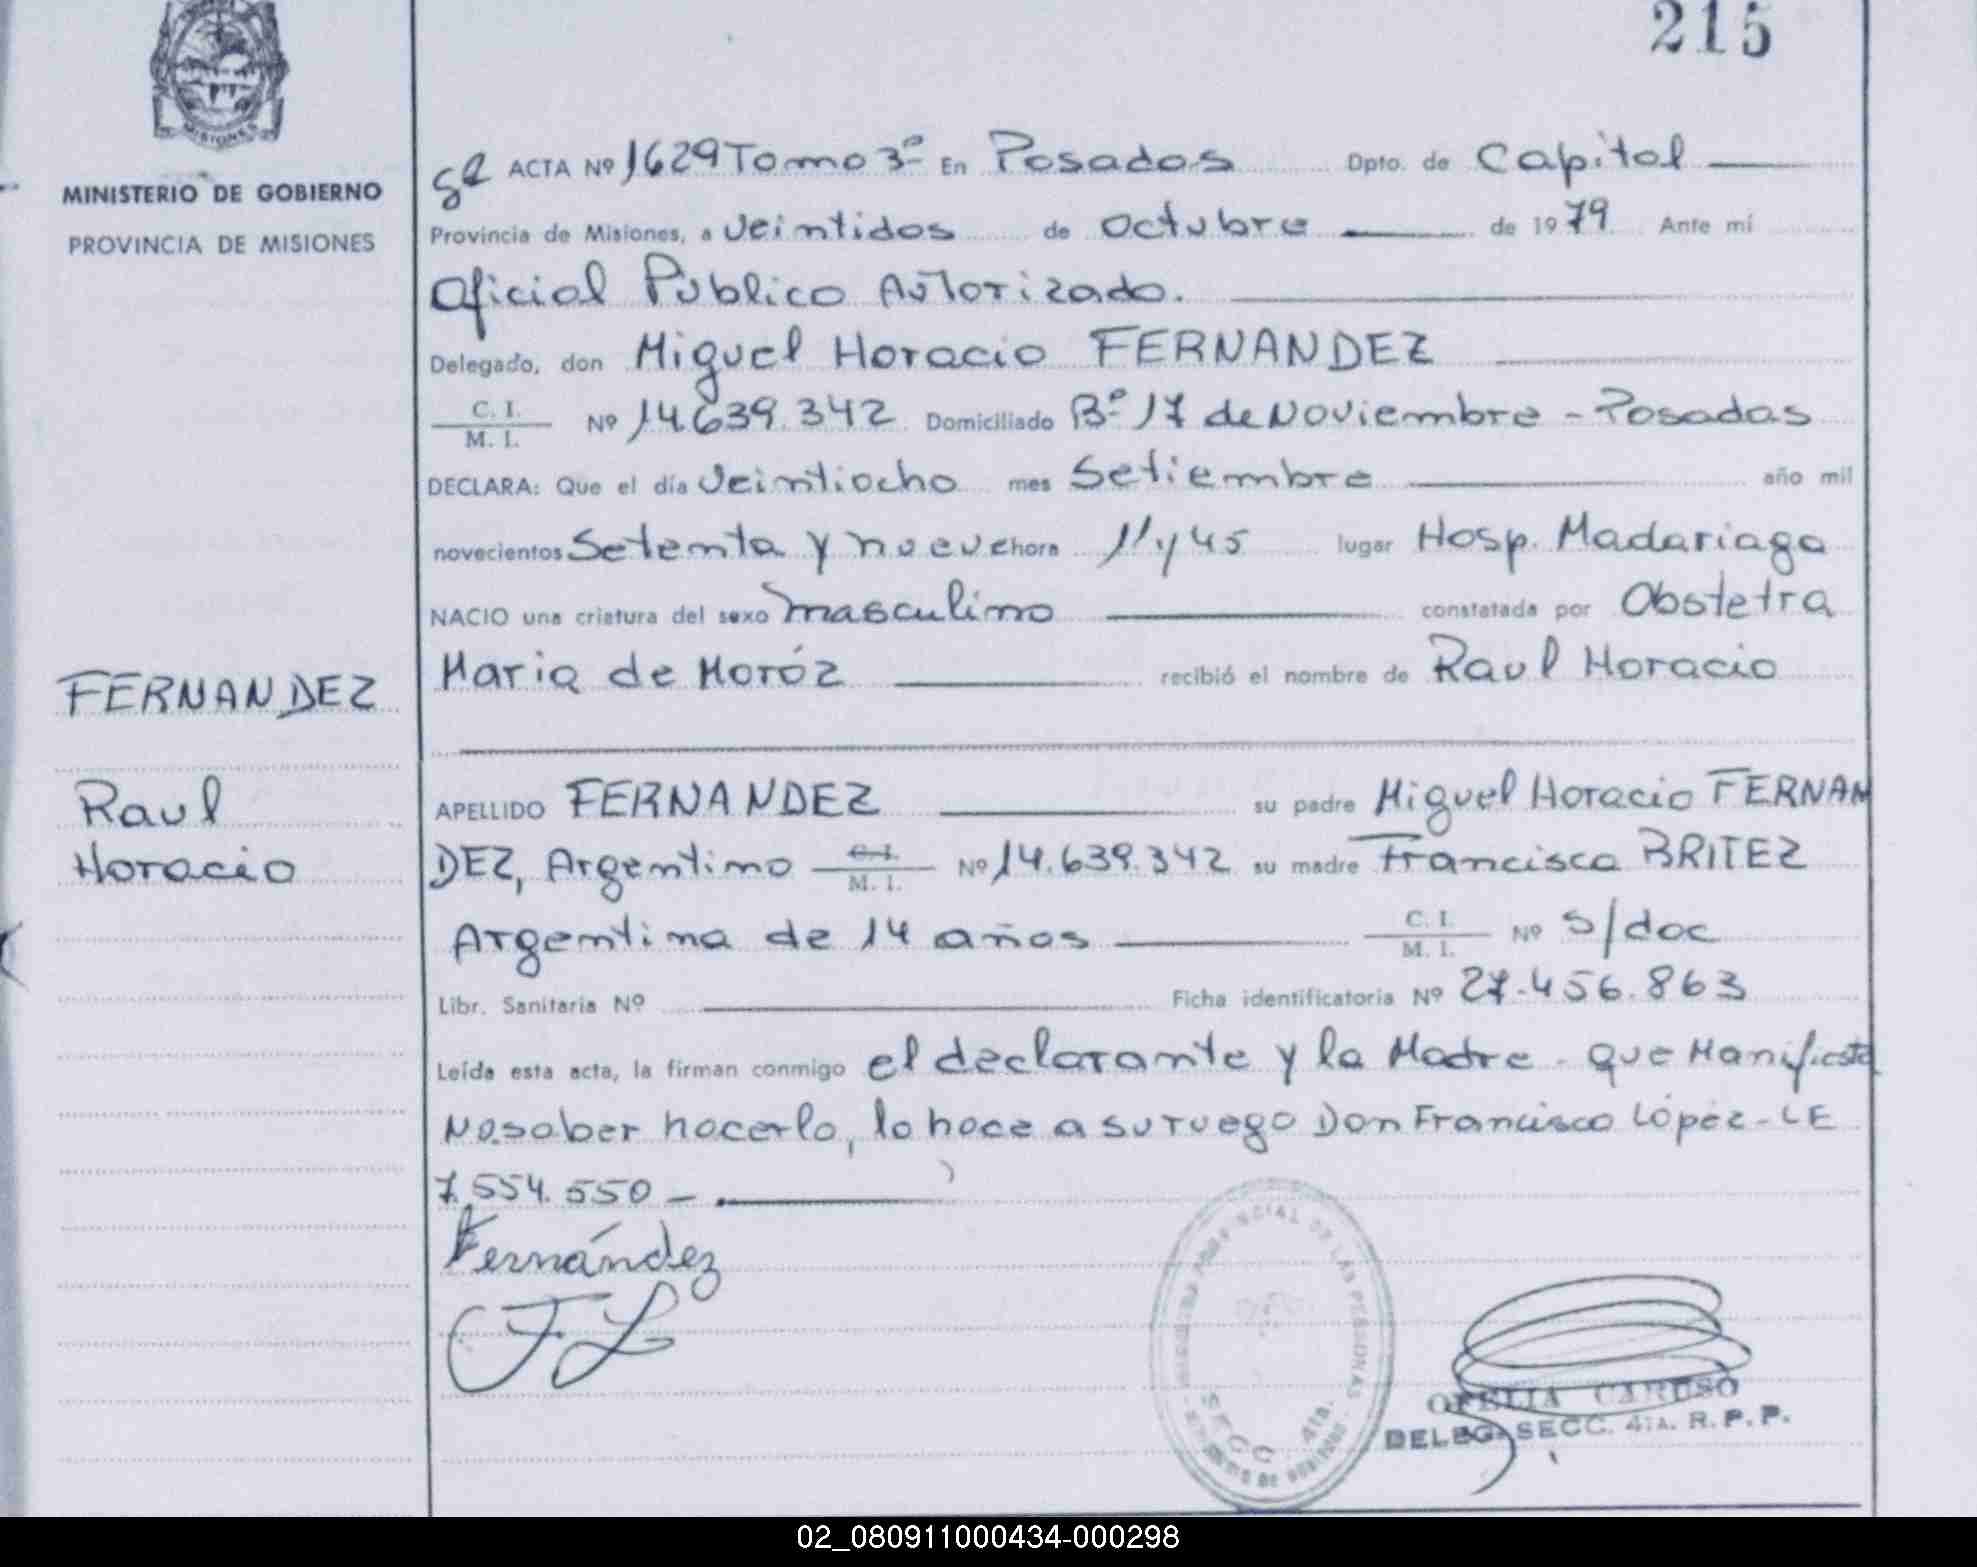 215
MISIONES
MINISTERIO DE GOBIERNO
PROVINCIA DE MISIONES
FERNANDEZ
Raul
Horacio
ACTA Nº 1629 Tomo 3º En Posadas Dpto. de Capital
Provincia de Misiones, a veintidos de octubre de 1979 Ante mí
Oficial Público Autorizado.
Delegado, don Miguel Horacio FERNANDEZ
C. I. / M. I. Nº 14.639.342 Domiciliado Bº 17 de Noviembre - Posadas
DECLARA: Que el día veintiocho mes Setiembre año mil
novecientos Setenta y nueve hora 11 y 45 lugar Hosp. Madariaga
NACIO una criatura del sexo masculino constatada por Obstetra
Maria de Moróz recibió el nombre de Raul Horacio
APELLIDO FERNANDEZ su padre Miguel Horacio FERNAN
DEZ, Argentino C.I. / M. I. Nº 14.639.342 su madre Francisca BRITEZ
Argentina de 14 años C. I. / M. I. Nº S/doc
Libr. Sanitaria Nº Ficha identificatoria Nº 27.456.863
Leída esta acta, la firman conmigo el declarante y la Madre - que Manifiesta
No saber hacerlo, lo hace a su ruego Don Francisco López - LE
7.554.550 -
Fernández
FL
PROVINCIAL DE LAS PERSONAS
SECC. 4ta.
OFELIA CARUSO
DELEG. SECC. 4TA. R. P. P.
02_080911000434-000298